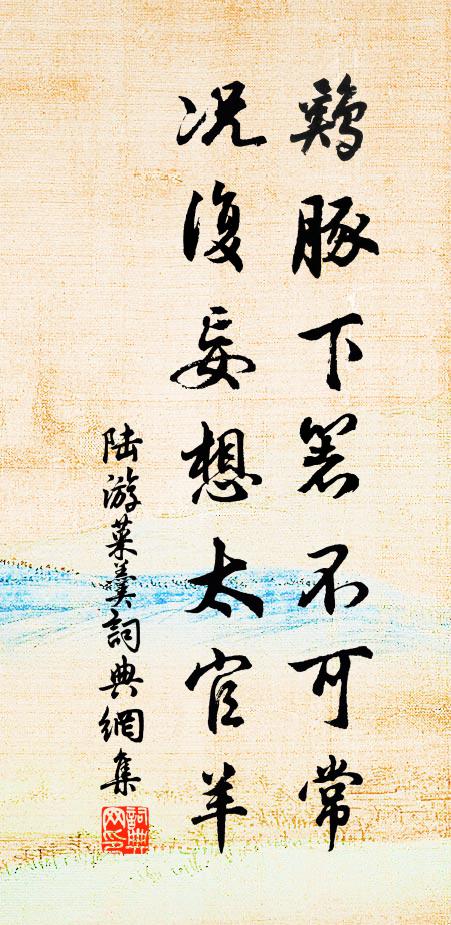 鷄豚下箸不可常
况復妄想太官羊
陸游菜羹詞典網集
詞典网印